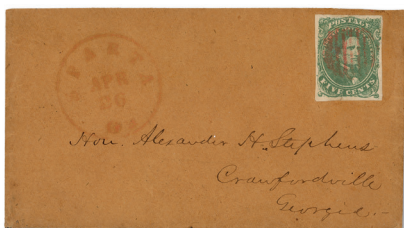 SPARTA
APR
26
GA
POSTAGE
FIVE CENTS
Hon. Alexander H. Stephens
Crawfordville
Georgia.-